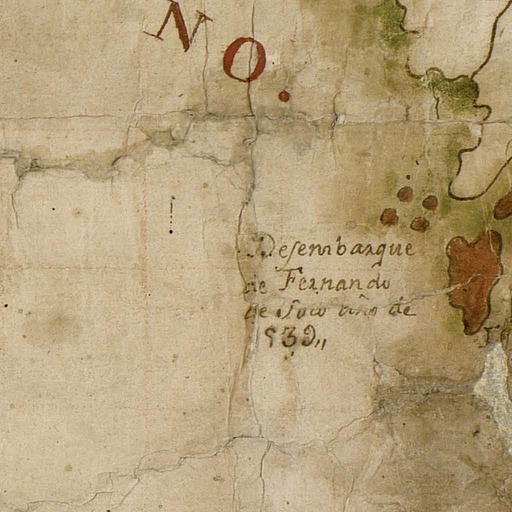 NO.
Desembarque
de Fernando
de Soto año de
1539,,